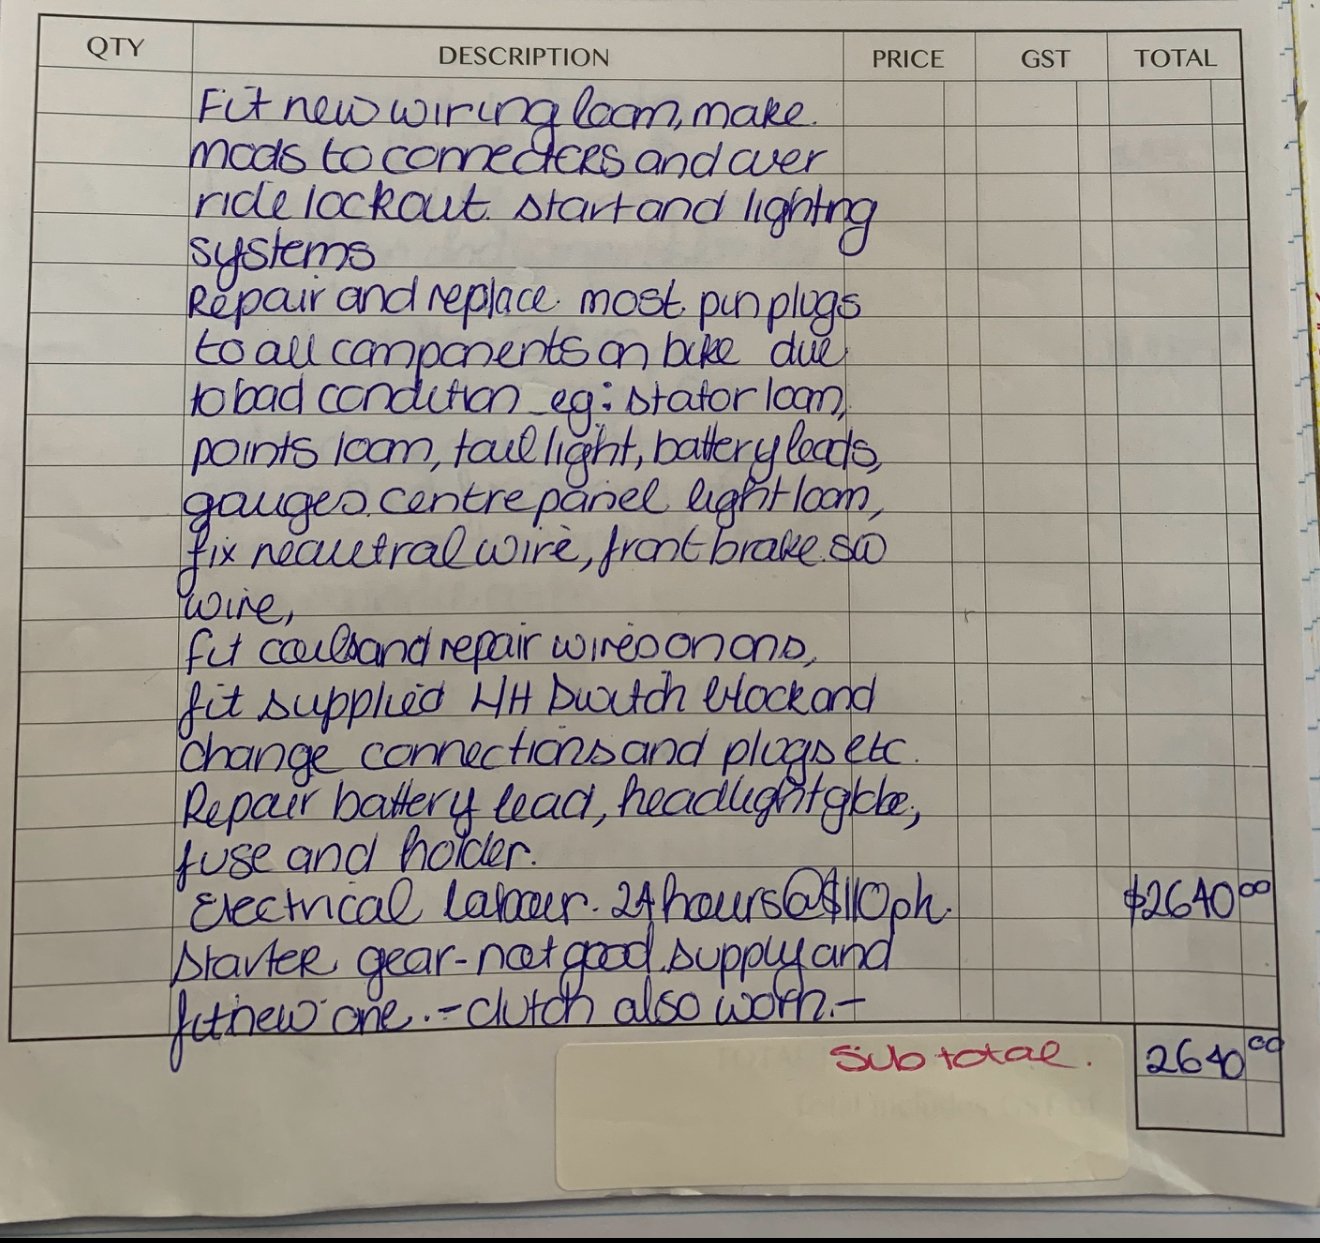 QTY DESCRIPTION PRICE GST TOTAL
Fit new wiring loom, make
mods to connecters and over
ride lockout start and lighting
systems
Repair and replace most pin plugs
to all components on bike due
to bad condition eg: stator loom,
points loom, tail light, battery leads,
gauges, centre panel light loom,
fix neautral wire, front brake sw
wire,
fit coils and repair wires on ons,
fit supplied L/H Switch block and
change connections and plugs etc.
Repair battery lead, headlight globe,
fuse and holder.
Electrical labour. 24 hours @ $110 ph. $2640 00
Starter gear - not good. supply and
fit new one. - clutch also worn. -
Sub total. 2640 00